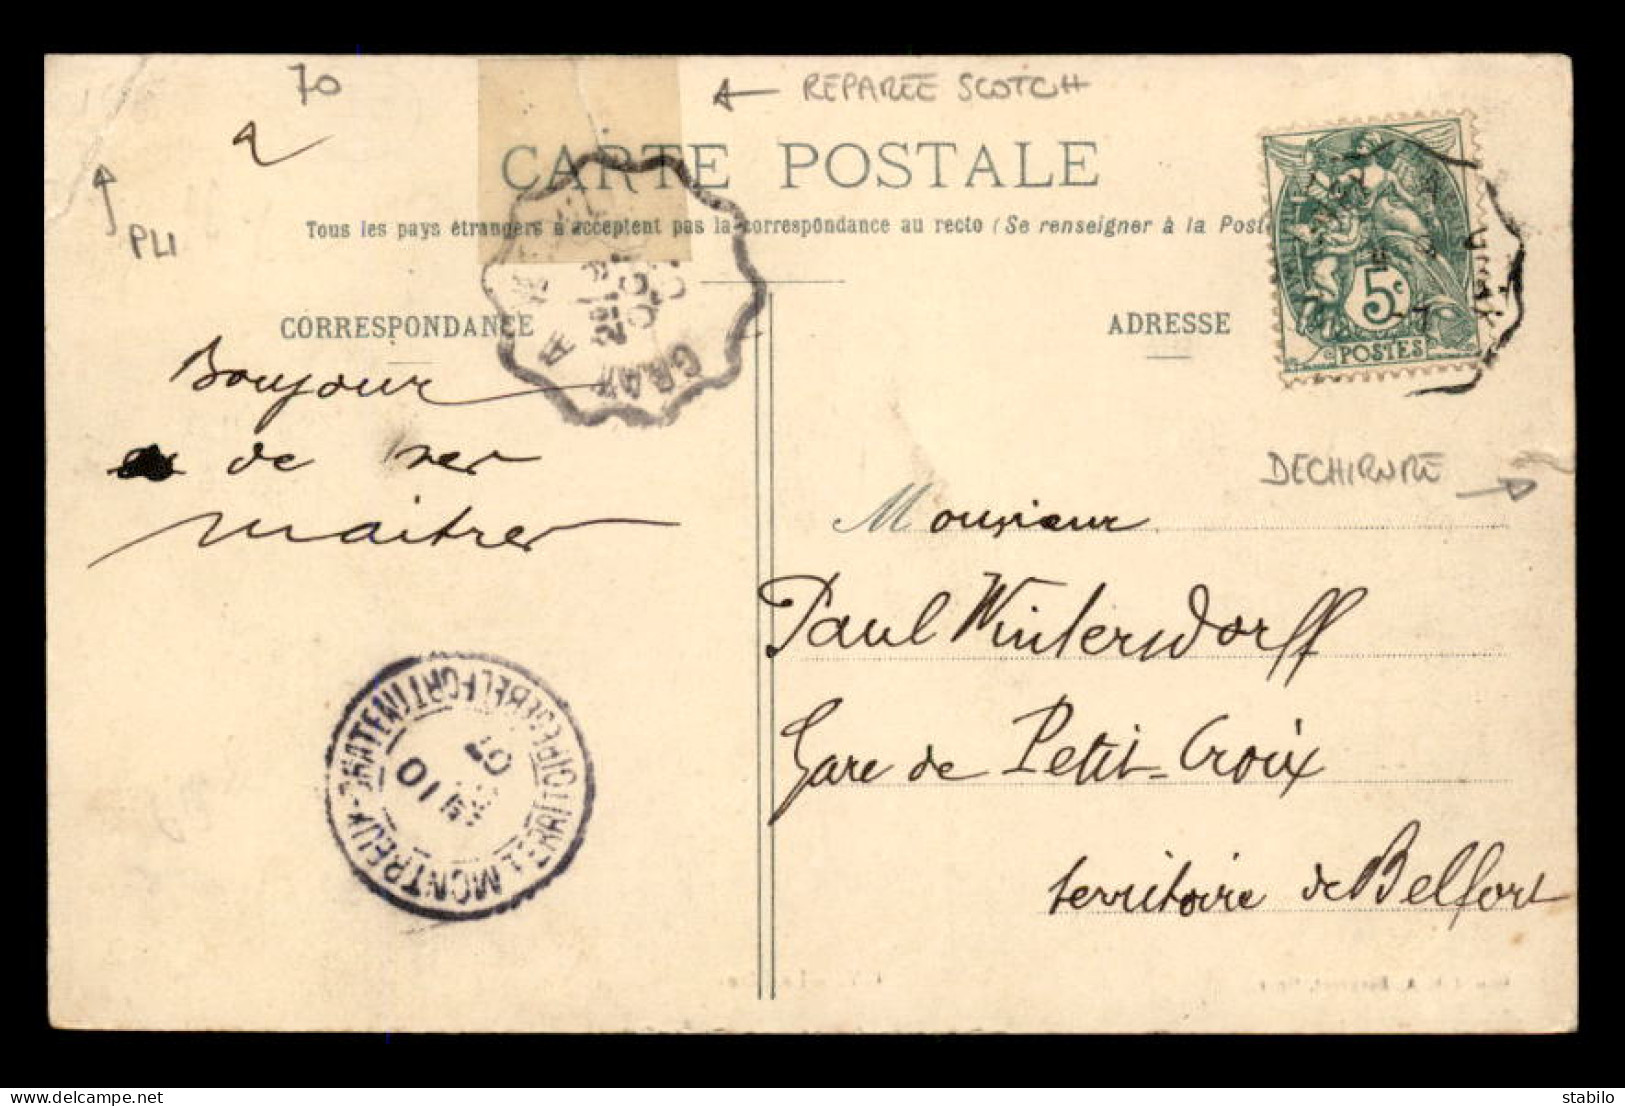 70
← REPARÉE SCOTCH
PLI
CARTE POSTALE
Tous les pays étrangers n'acceptent pas la correspondance au recto (Se renseigner à la Poste
CORRESPONDANCE
ADRESSE
5c
POSTES
GRAY
GRAY
Bonjour
de ses
maitres
DECHIRURE →
Monsieur
Paul Wintersdorff
Gare de Petit-Croix
territoire de Belfort
MONTREUX-CHATEAU TERRITOIRE DE BELFORT
10
07